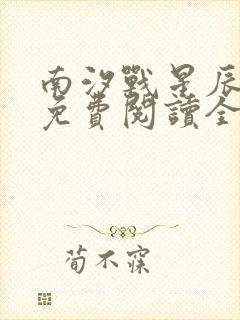 南汐戰星辰
免費閱讀全
荀不寐